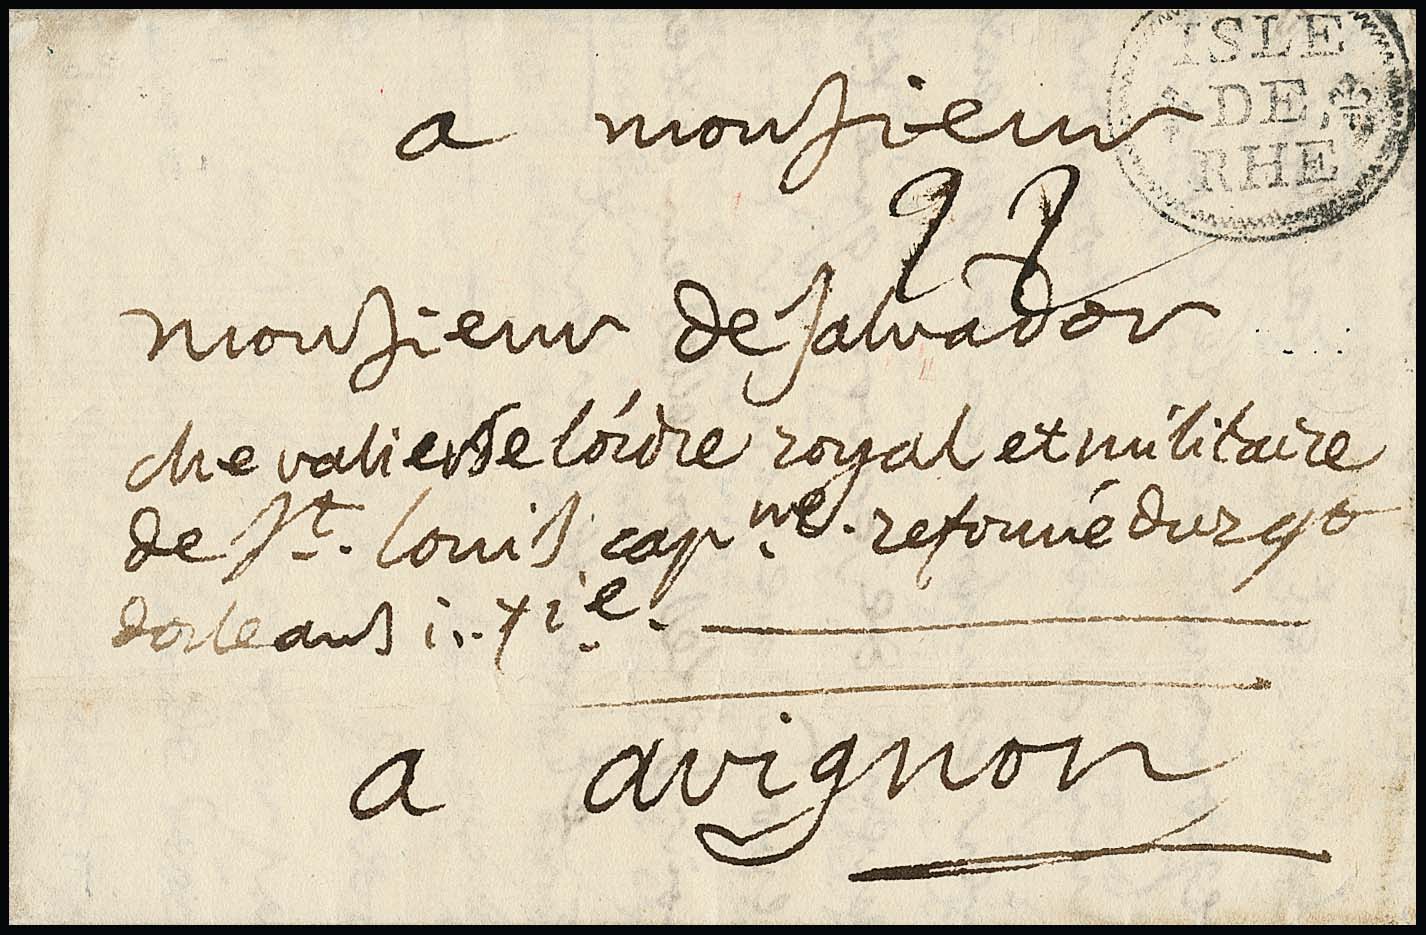 ISLE
DE
RHE
a monsieur
monsieur de salvador
chevalier de lordre royal et militaire
de St. louis capne. reformé du rgt
dorleans
a avignon